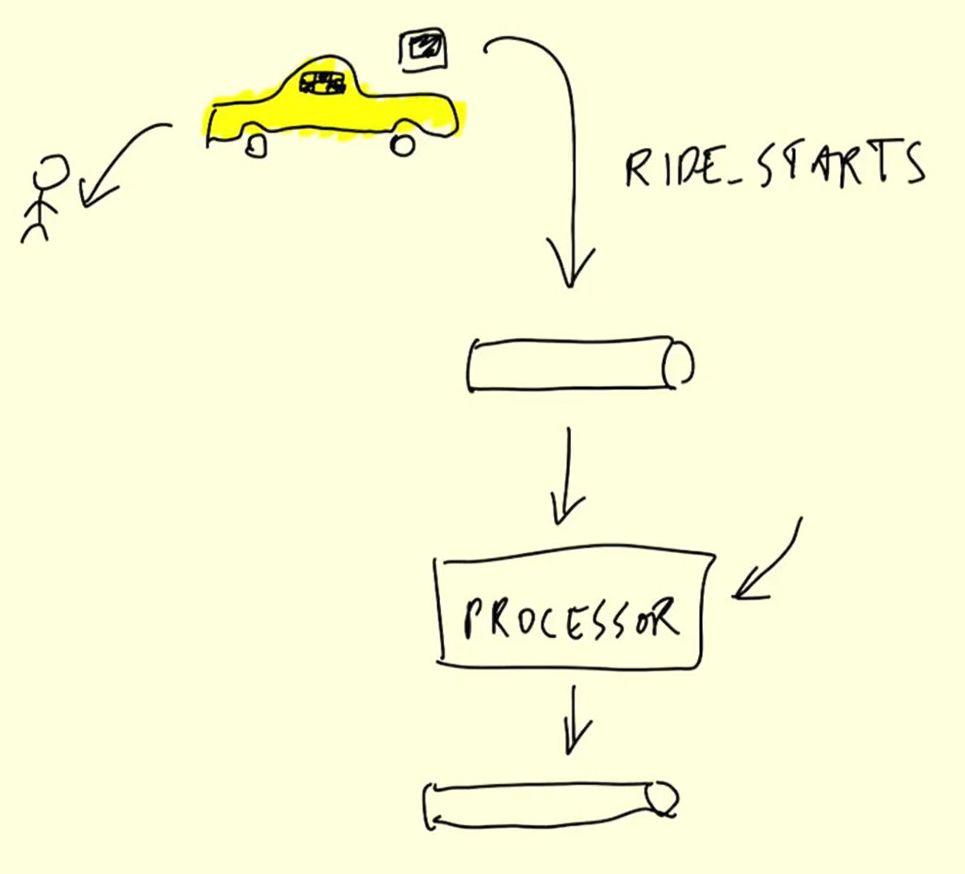 RIDE_STARTS
PROCESSOR